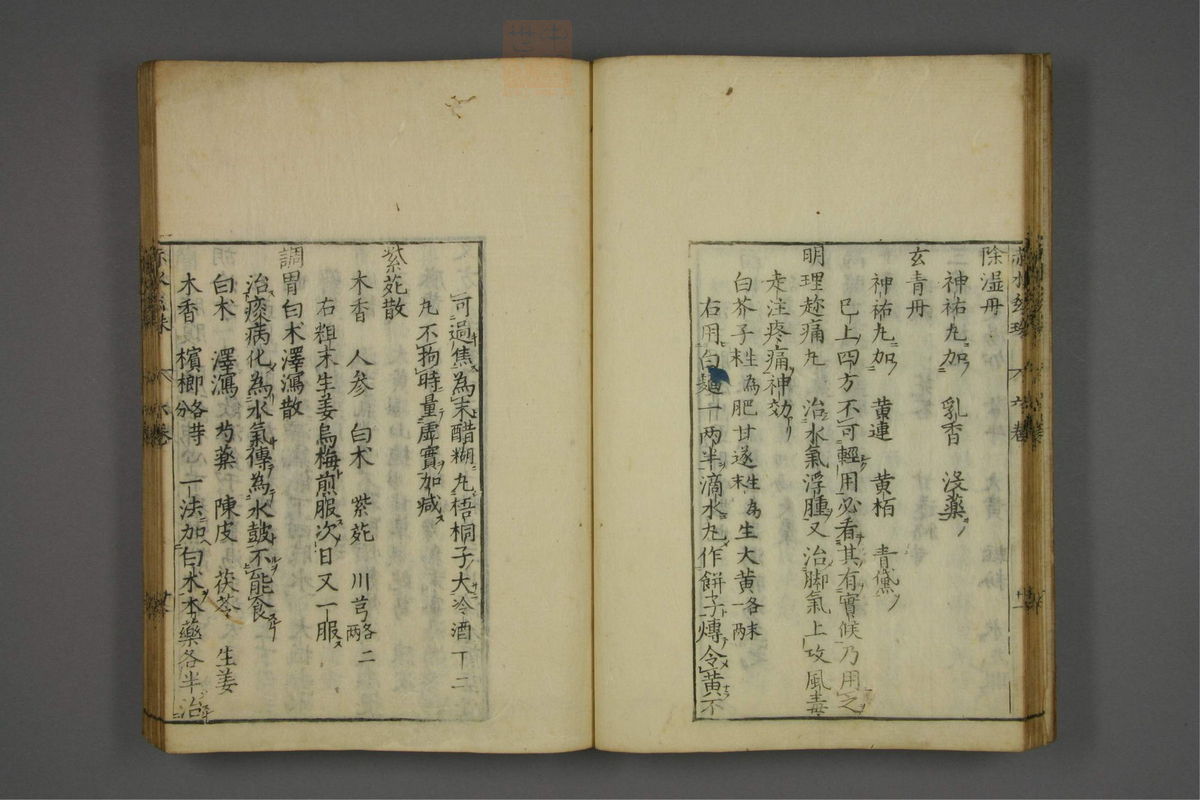 除濕丹
神祐丸加 乳香 沒藥
玄青丹
神祐丸加 黄連 黄栢 青黛
已上四方不可輕用必看其有實候乃用之
明理趂痛丸 治水氣浮腫又治脚氣上攻風毒
走注疼痛神効
白芥子生為末 肥甘遂生為末 生大黄各末一兩
右用白麺一两半滴水丸作餅子煿令黄不
可過焦為末醋糊丸梧桐子大冷酒下二
丸不拘時量虚實加减
紫菀散
木香 人参 白朮 紫菀 川芎各二兩
右粗末生姜烏梅煎服次日又一服
調胃白朮澤瀉散
治痰病化為水氣傳為水皷不能食
白朮 澤瀉 芍藥 陳皮 茯苓 生姜
木香 檳榔各等分 一法加白朮木藥各半治